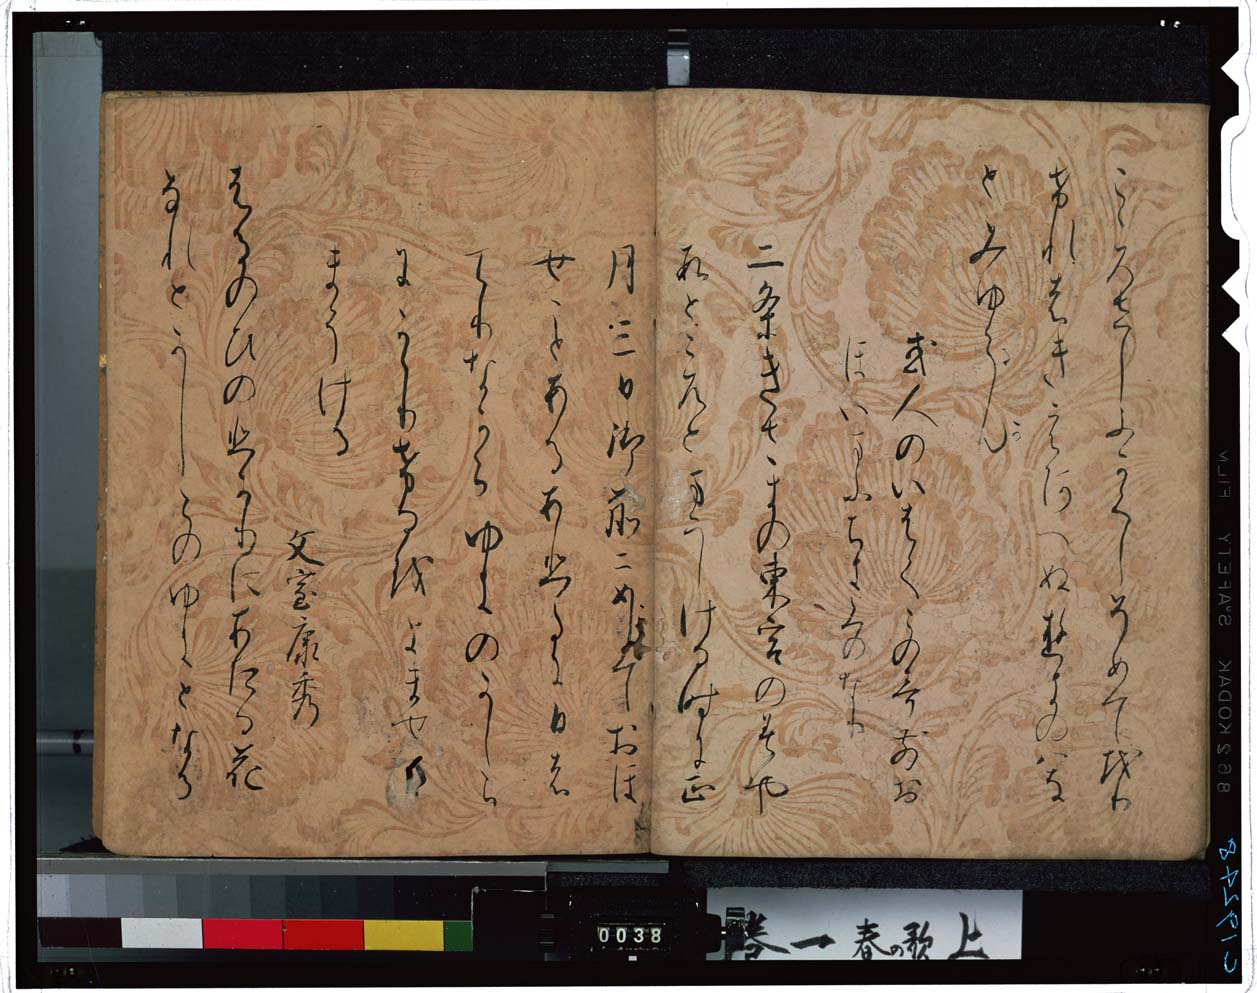 こゝろさしふかくしそめてをり
けれはきえあへぬ雪の花
とみゆらん
或人のいはくこの哥前お
ほいまうちきみのなり
二条きさき東宮のみや
ところとまうしける時に正
月三日御前にめしておほ
せことあるあひたに日は
てりなからゆきのかしら
にふりかゝりけるをよませ
まうける
文室康秀
はるのひのひかりにあたる花
なれとかしらのゆきとなる
0038
巻一 春の歌 上
862 KODAK SAFETY FILM